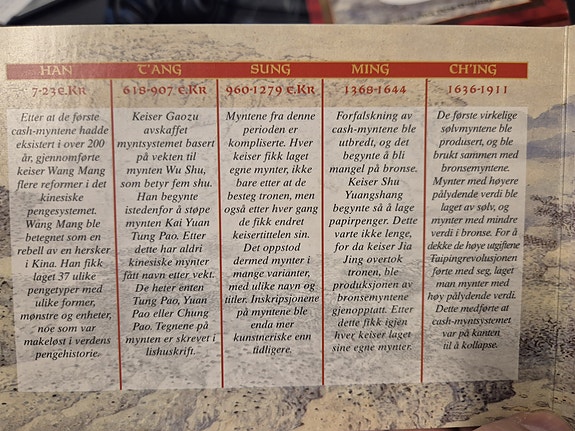 HAN
7-23 E.KR
Etter at de første
cash-myntene hadde
eksistert i over 200
år, gjennomførte
keiser Wang Mang
flere reformer i det
kinesiske
pengesystemet.
Wang Mang ble
betegnet som en
rebell av en hersker
i Kina. Han fikk
laget 37 ulike
pengetyper med
ulike former,
mønstre og enheter,
noe som var
makeløst i verdens
pengehistorie.
T'ANG
618-907 E.KR
Keiser Gaozu
avskaffet
myntsystemet basert
på vekten til
mynten Wu Shu,
som betyr fem shu.
Han begynte
istedenfor å støpe
mynten Kai Yuan
Tung Pao. Etter
dette har aldri
kinesiske mynter
fått navn etter vekt.
De heter enten
Tung Pao, Yuan
Pao eller Chung
Pao. Tegnene på
mynten er skrevet i
lishuskrift.
SUNG
960-1279 E.KR
Myntene fra denne
perioden er
kompliserte. Hver
keiser fikk laget
egne mynter, ikke
bare etter at de
besteg tronen, men
også etter hver gang
de fikk endret
keisertittelen sin.
Det oppstod
dermed mynter i
mange varianter,
med ulike navn og
titler. Inskripsjonene
på myntene ble
enda mer
kunstneriske enn
tidligere.
MING
1368-1644
Forfalskning av
cash-myntene ble
utbredt, og det
begynte å bli
mangel på bronse.
Keiser Shu
Yuangshang
begynte så å lage
papirpenger. Dette
varte ikke lenge,
for da keiser Jia
Jing overtok
tronen, ble
produksjonen av
bronsemyntene
gjenopptatt. Etter
dette fikk igjen
hver keiser laget
sine egne mynter.
CH'ING
1636-1911
De første virkelige
sølvmyntene ble
produsert, og ble
brukt sammen med
bronsemyntene.
Mynter med høyere
pålydende verdi ble
laget av sølv, og
mynter med mindre
verdi i bronse. For å
dekke de høye utgiftene
Taipingrevolusjonen
førte med seg, laget
man mynter med
høy pålydende verdi.
Dette medførte at
cash-myntsystemet
var på kanten
til å kollapse.